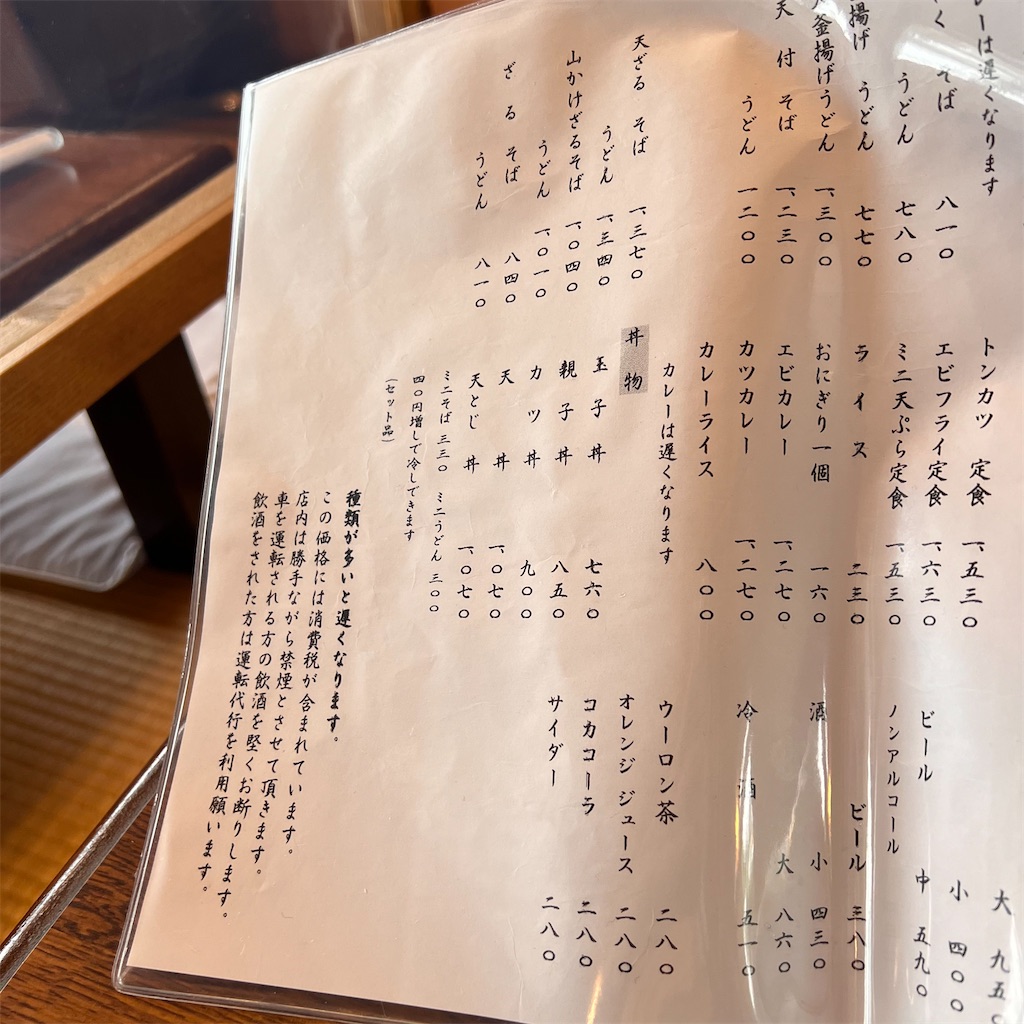 レーは遅くなります
く そば 八一〇
うどん 七八〇
揚げ うどん 七七〇
釜揚げうどん 一、三〇〇
天付 そば 一、二三〇
うどん 一、二〇〇
天ざる そば 一、三七〇
うどん 一、三四〇
山かけざるそば 一、〇四〇
うどん 一、〇一〇
ざる そば 八四〇
うどん 八一〇
トンカツ 定食 一、五三〇
エビフライ定食 一、六三〇
ミニ天ぷら定食 一、五三〇
ライス 二三〇
おにぎり一個 一六〇
エビカレー 一、二七〇
カツカレー 一、二七〇
カレーライス 八〇〇
カレーは遅くなります
丼物
玉子丼 七六〇
親子丼 八五〇
カツ丼 九〇〇
天丼 一、〇七〇
天とじ丼 一、〇七〇
ミニそば 三三〇 ミニうどん 三〇〇
四〇円増しで冷しできます
(セット品)
大 九五〇
小 四〇〇
ビール 中 五九〇
ノンアルコール
ビール 三八〇
酒 小 四三〇
大 八六〇
冷酒 五一〇
ウーロン茶 二八〇
オレンジジュース 二八〇
コカコーラ 二八〇
サイダー 二八〇
種類が多いと遅くなります。
この価格には消費税が含まれています。
店内は勝手ながら禁煙とさせて頂きます。
車を運転される方の飲酒を堅くお断りします。
飲酒をされた方は運転代行を利用願います。